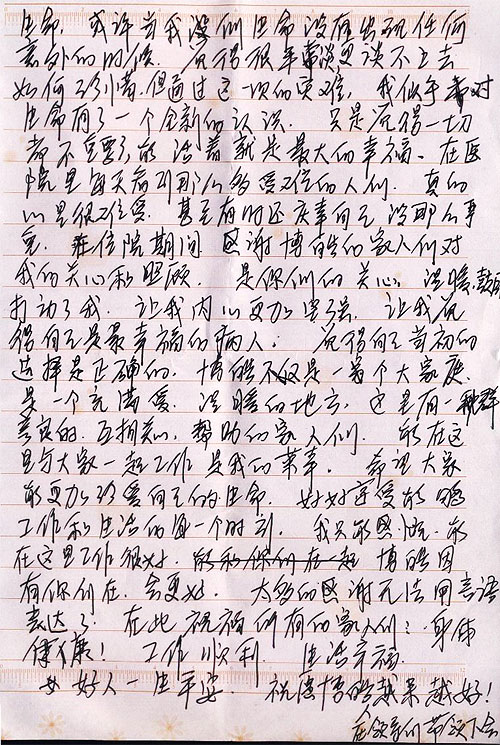 生命，或许当我没们生命没有出现任何
意外的时候，觉得很平常谈更谈不上去
如何珍惜，但通过这一次的灾难，我似乎对
生命有了一个全新的认识，只是觉得一切
都不重要了，能活着就是最大的幸福。在医
院里每天看到那么多受伤的人们，真的
心里很难受，甚至有时还庆幸自己没那么事
危，在住院期间感谢博皓的家人们对
我的关心和照顾，是你们的关心，温暖，鼓励
打动了我，让我内心更加坚强，让我觉
得自己是最幸福的病人，觉得自己当初的
选择是正确的，博皓不仅是一个大家庭
是一个充满爱，温暖的地方，这里有一群
善良的，互相关心，帮助的家人们，能在这
里与大家一起工作是我的荣幸，希望大家
能更加珍爱自己的生命，好好享受能够
工作和生活的每一个时刻，我只能感慨，能
在这里工作很好，能和你们在一起 博皓因
有你们在，会更好，太多的感谢无法用言语
表达了，在此祝福所有的家人们：身体
健康！工作顺利，生活幸福，
好人一生平安，祝愿博皓越来越好！
在领导们带领下会